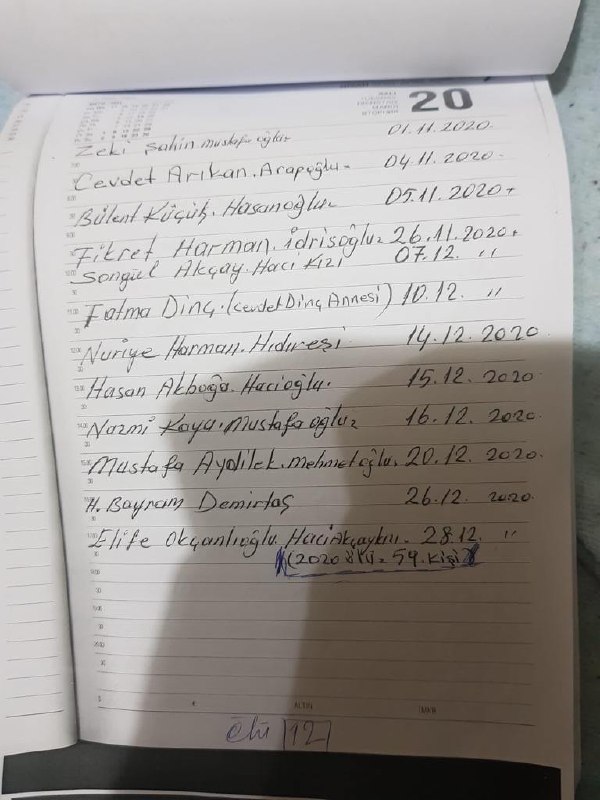 SALI
20
Zeki Şahin mustafa oğlu 01.11.2020.
Cevdet Arıkan. Arapoğlu 04.11.2020.
Bülent Küçük. Hasanoğlu 05.11.2020
Fikret Harman. İdrisoğlu 26.11.2020
Songül Akçay. Haci Kızı 07.12. "
Fatma Dinç. (Cevdet Dinç Annesi) 10.12. "
Nuriye Harman. Hıdıreşi 14.12.2020
Hasan Akboğa. Hacioğlu. 15.12.2020
Nazmi Kaya. Mustafa oğlu 16.12.2020.
Mustafa Aydilek. mehmetoğlu. 20.12.2020.
H. Bayram Demirtaş 26.12. 2020.
Elife Okçanlıoğlu Haci 28.12. "
(2020 ölü = 59. Kişi)
€ ALTIN
ölü 12